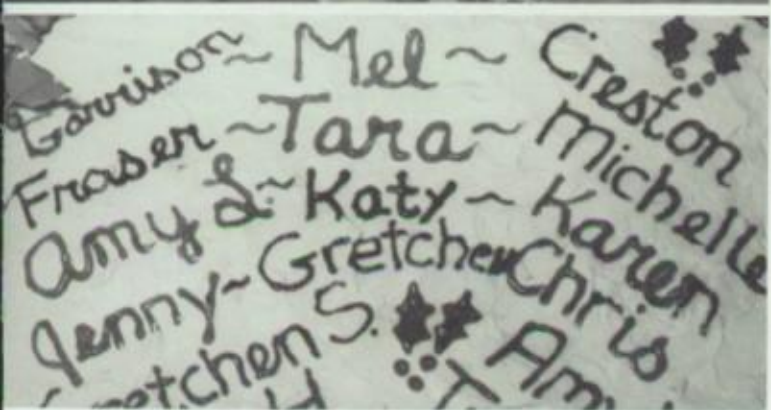 Garrison ~ Mel ~ Creston
Fraser ~ Tara ~ Michelle
Amy L. ~ Katy ~ Karen
Jenny ~ Gretchen Chris
Gretchen S. Amy